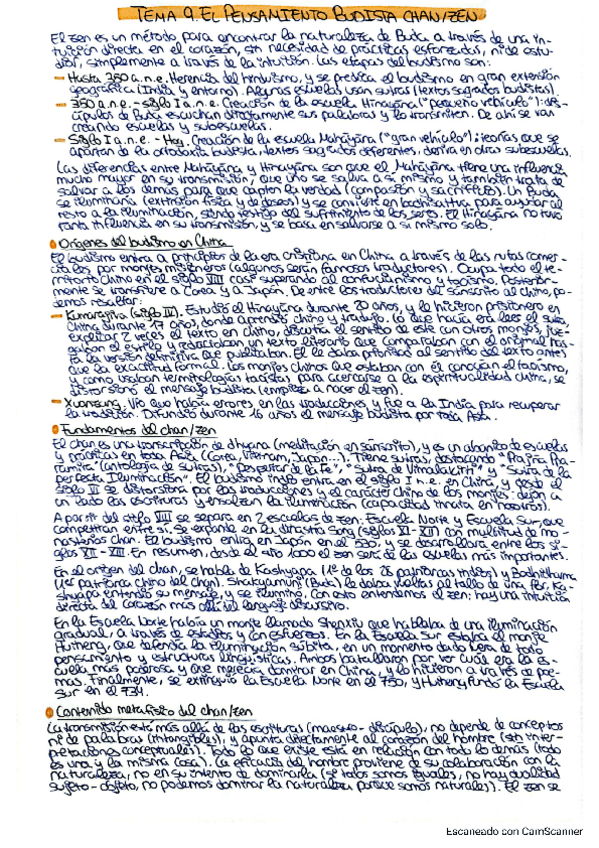 TEMA 9. EL PENSAMIENTO BUDISTA CHAN/ZEN
El zen es un método para encontrar la naturaleza de Buda a través de una in-
tuición directa en el corazón, sin necesidad de prácticas esforzadas, ni de estu-
diar, simplemente a través de la intuición. Las etapas del budismo son:
- Hasta 350 a.n.e. Herencia del hinduismo, y se predica el budismo en gran extensión
geográfica (India y entorno). Algunas escuelas usan sutras (textos sagrados budistas).
- 350 a.n.e. - siglo I a.n.e. Creación de la escuela Hinayāna ("pequeño vehículo"): dis-
cípulos de Buda escuchan directamente sus palabras y lo transmiten. De ahí se van
creando escuelas y subescuelas.
- Siglo I a.n.e. - Hoy. Creación de la escuela Mahāyāna ("gran vehículo"): teorías que se
apartan de la ortodoxia budista, textos sagrados diferentes, deriva en otras subescuelas.
Las diferencias entre Mahāyāna y Hinayāna son que el Mahāyāna tiene una influencia
mucho mayor en su transmisión, que uno se salva a sí mismo y también trata de
salvar a los demás para que capten la verdad (compasión y sacrificio). Un Buda
se iluminaría (extinción física y de deseos) y se convierte en bodhisattva para ayudar al
resto a la iluminación, siendo testigo del sufrimiento de los seres. El Hinayāna no tuvo
tanta influencia en su transmisión, y se basa en salvarse a sí mismo solo.
Orígenes del budismo en China
El budismo entra a principios de la era cristiana en China a través de las rutas comer-
ciales por monjes misioneros (algunos serán famosos traductores). Ocupa todo el te-
rritorio chino en el siglo VIII casi superando al confucianismo y taoísmo. Posterior-
mente se transfiere a Corea y a Japón. De entre los traductores del sánscrito al chino, po-
demos resaltar:
- Kumarajiva (siglo III). Estudió el Hinayāna durante 20 años, y lo hicieron prisionero en
China durante 17 años, donde aprendió chino y trabajó. Lo que hacía era leer el sutra,
explicar 2 veces el texto en chino, discutía el sentido de este con otros monjes, juz-
gaban el estilo y redactaban un texto literario que comparaban con el original has-
ta la versión definitiva que publicaban. Él le daba prioridad al sentido del texto antes
que la exactitud formal. Los monjes chinos que estaban con él conocían el taoísmo,
y como usaban terminologías taoístas para acercarse a la espiritualidad china, se
distorsionó el mensaje budista (empieza a nacer el zen).
- Xuanzang. Vio que había errores en las traducciones y fue a la India para recuperar
la tradición. Difundió durante 16 años el mensaje budista por toda Asia.
Fundamentos del chan/zen
El chan es una transcripción de dhyana (meditación en sánscrito), y es un abanico de escuelas
y prácticas en toda Asia (Corea, Vietnam, Japón...). Tiene sutras, destacando "Prajña Pa-
ramita" (antología de sutras), "Despertar de la Fe", "Sutra de Vimalakirti" y "Sutra de la
perfecta Iluminación". El budismo indio entra en el siglo I n.e. en China, y desde el
siglo II se distorsiona por las traducciones y el carácter chino de los monjes: dejan a
un lado las escrituras y ensalzan la iluminación (capacidad innata en nosotros).
A partir del siglo VIII se separa en 2 escuelas de zen: Escuela Norte y Escuela Sur, que
competirán entre sí. Se expande en la dinastía Song (siglos XI-XII) con multitud de mo-
nasterios chan. El budismo entra en Japón en el 550, y se desarrollaría entre los si-
glos XII-XIII. En resumen, desde el año 1000 el zen será de las escuelas más importantes.
En el origen del chan, se habla de Kashyapa (1º de los 28 patriarcas indios) y Bodhidharma
(1er patriarca chino del chan). Shakyamuni (Buda) le daba vueltas al tallo de una flor, Ka-
shyapa entendió su mensaje, y se iluminó. Con esto entendemos el zen: hay una intuición
directa del corazón más allá del lenguaje discursivo.
En la Escuela Norte había un monje llamado Shenxiu que hablaba de una iluminación
gradual, a través de estudios y con esfuerzos. En la Escuela Sur estaba el monje
Huineng, que defendía la iluminación súbita, en un momento dado fuera de todo
pensamiento y estructuras lingüísticas. Ambos batallaron por ver cuál era la es-
cuela más poderosa y que merecía dominar en China, y lo hicieron a través de poe-
mas. Finalmente, se extinguió la Escuela Norte en el 750, y Huineng fundó la Escuela
Sur en el 734.
Contenido metafísico del chan/zen
La transmisión está más allá de las escrituras (maestro-discípulo), no depende de conceptos
ni de palabras (intangibles), y apunta directamente al corazón del hombre (sin inter-
pretaciones conceptuales). Todo lo que existe está en relación con todo lo demás (todo
es una y la misma cosa). La eficacia del hombre proviene de su colaboración con la
naturaleza, no en su intento de dominarla (si todos somos iguales, no hay dualidad
sujeto-objeto, no podemos dominar la naturaleza porque somos naturales). El zen se
Escaneado con CamScanner